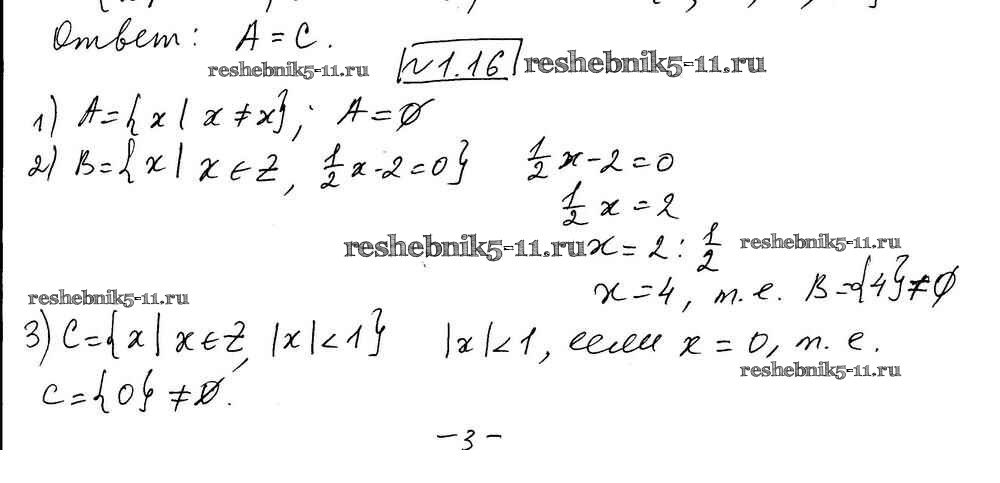 Ответ: A = C.
reshebnik5-11.ru
№1.16 reshebnik5-11.ru
1) A={x | x ≠ x}; A=∅
2) B={x | x ∈ Z, 1/2 x - 2 = 0} 1/2 x - 2 = 0
1/2 x = 2
reshebnik5-11.ru x = 2 : 1/2 reshebnik5-11.ru
reshebnik5-11.ru x = 4, т.е. B={4}≠∅
3) C={x | x ∈ Z, |x|<1} |x|<1, если x = 0, т.е.
reshebnik5-11.ru
C={0}≠∅.
-3-